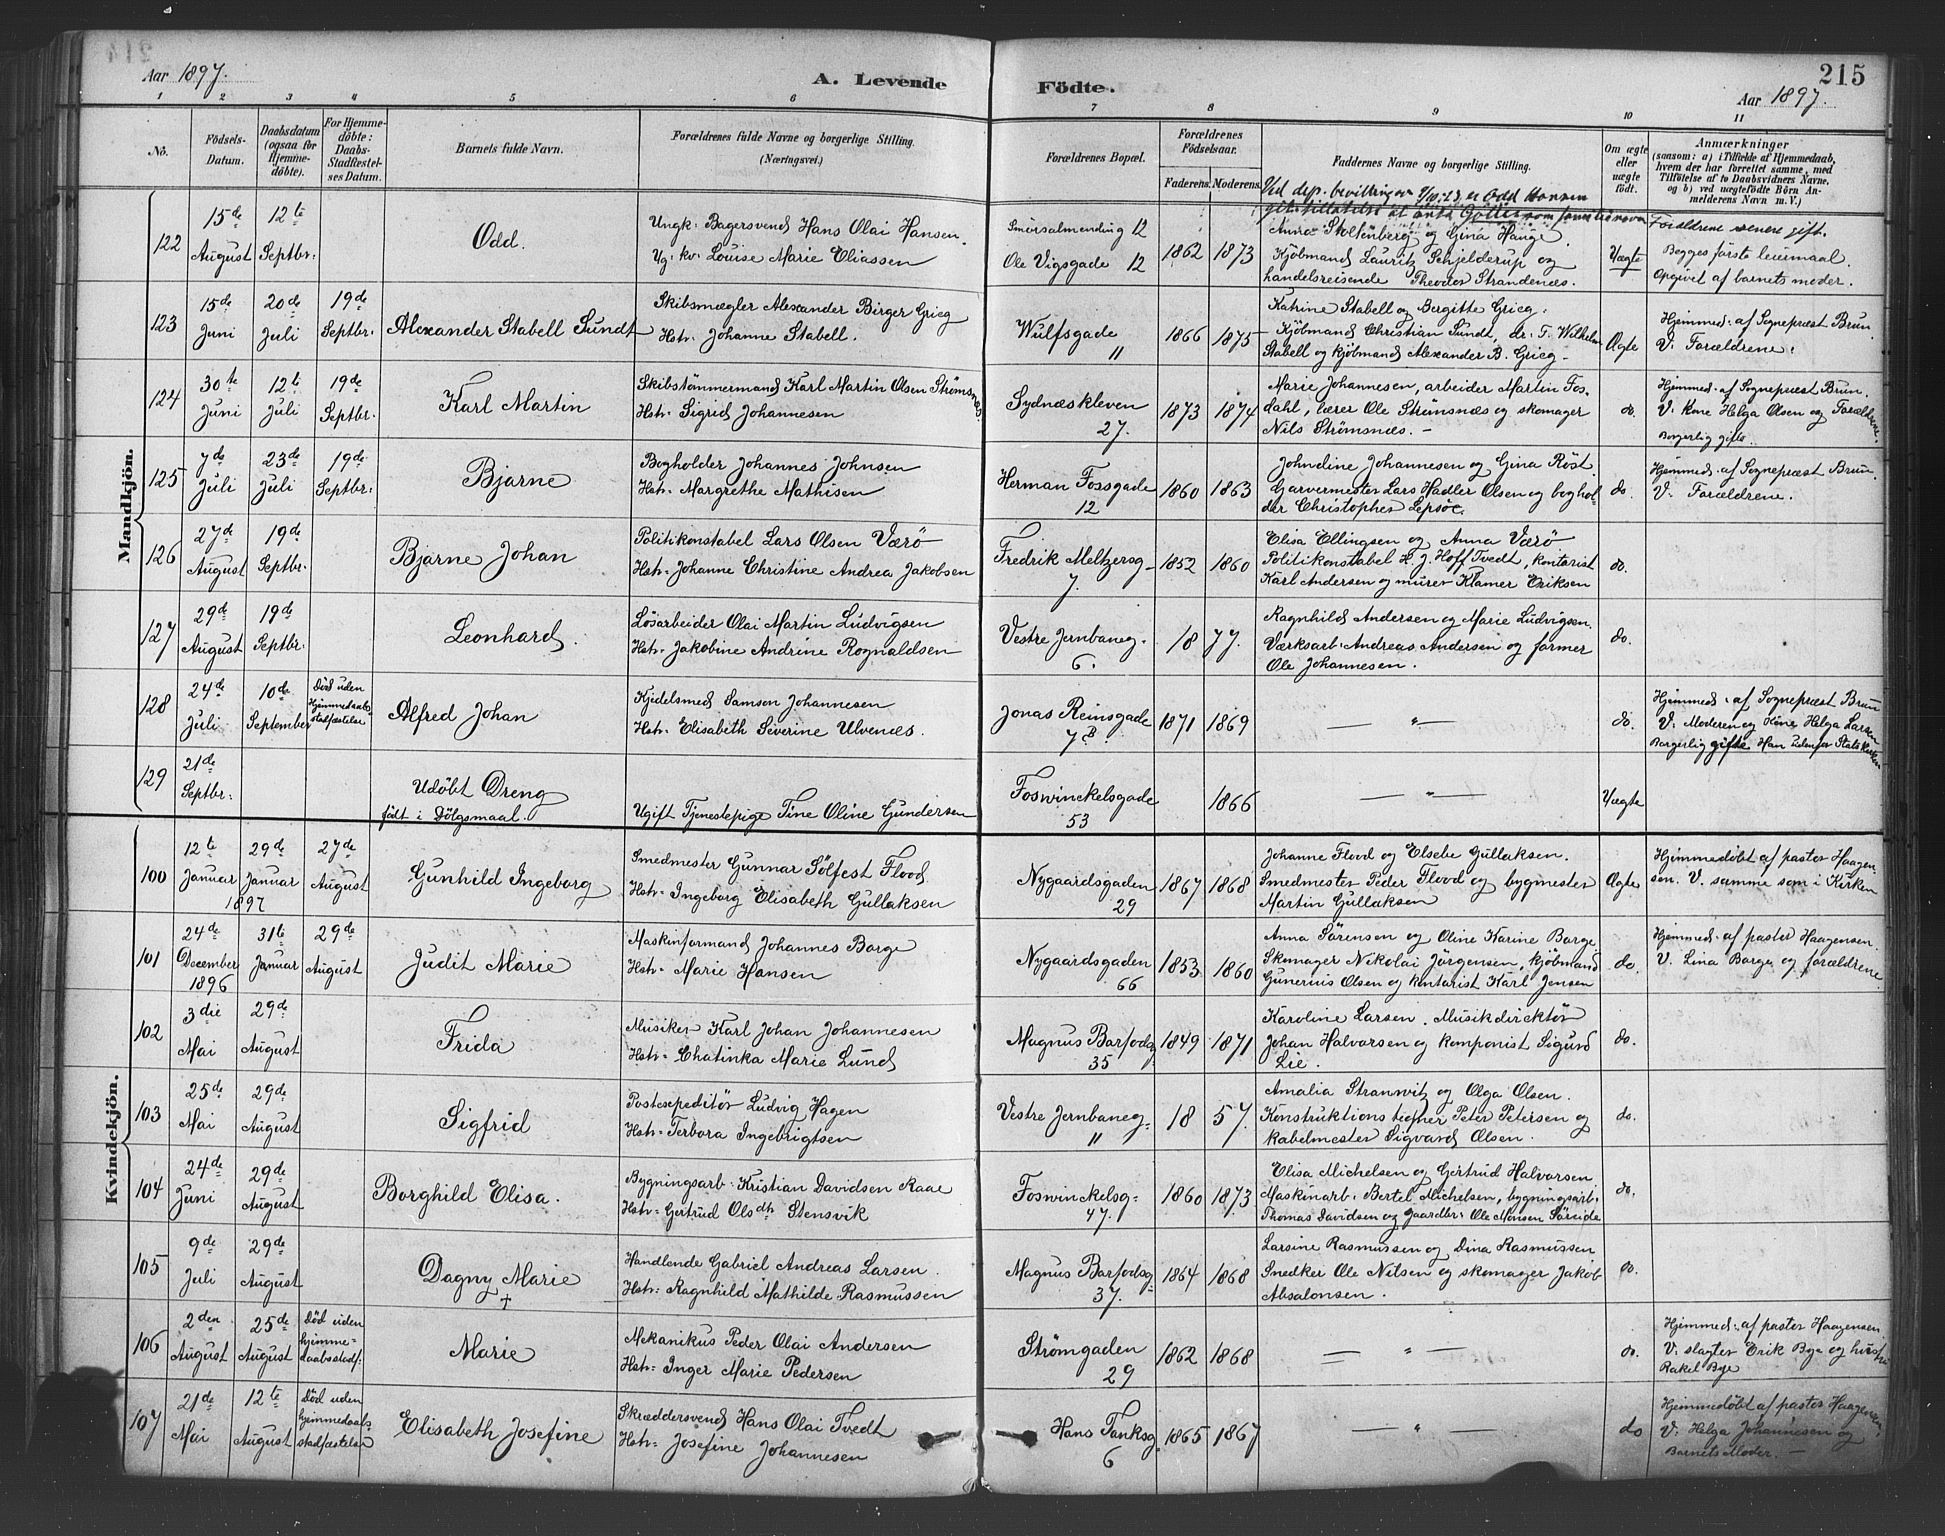 Aar 1897.
A. Levende Födte.
215
Aar 1897.
1 2 3 4 5 6 7 8 9 10 11
No.
Födsels-Datum.
Daabsdatum (ogsaa for Hjemme-döbte).
For Hjemme-döbte: Daabs-Stadfæstel-ses Datum.
Barnets fulde Navn.
Forældrenes fulde Navne og borgerlige Stilling.
(Næringsvei.)
Forældrenes Bopæl.
Forældrenes Födselsaar.
Faderens. Moderens.
Faddernes Navne og borgerlige Stilling.
Om ægte eller uægte födt.
Anmærkninger
(saasom: a) i Tilfælde af Hjemmedaab, hvem der har forrettet samme, med Tilföielse af to Daabsvidners Navne, og b) ved uægtefödte Börn An-melderens Navn m. V.)
Mandkjön.
Ved dep. bevilling av 9/10.23 er Odd Hansen
git tillatelse at anta som familienavn
122
15de August
12te Septbr:
Odd.
Ungk: Bagersvend Hans Olai Hansen.
Ug: kv: Louise Marie Eliassen
Smörsalmending 12
Ole Vigsgade 12
1862 1873
Anna Stoltenberg og Gina Hauge.
Kjöbmand Lauritz Schjelderup og
handelsreisende Theodor Strandenæs.
Uægte
Forældrene senere gift.
Begges første leiermaal.
Opgivet af barnets moder.
123
15de Juni
20de Juli
19de Septbr:
Alexander Stabell Sundt
Skibsmægler Alexander Birger Grieg
Hstr: Johanne Stabell.
Wulfsgade
11
1866 1875
Katrine Stabell og Bergitte Grieg.
Kjöbmand Christian Sundt, dr. F. Wilhelm
Stabell og kjöbmand Alexander B. Grieg -
Ægte
Hjemmed: af Sognepræst Brun
V: Forældrene.
124
30te Juni
12te Juli
19de Septbr:
Karl Martin
Skibstömmermand Karl Martin Olsen Strömsnæs
Hstr: Sigrid Johannesen
Sydnæskleven
27.
1873 1874
Marie Johannesen, arbeider Martin Fos-
dahl, lærer Ole Strömsnæs og skomager
Nils Strömsnæs. -
do.
Hjemmed: af Sognepræst Brun.
V: Kone Helga Olsen og Forældrene.
Borgerlig gifte.
125
7de Juli
23de Juli
19de Septbr:
Bjarne
Bogholder Johannes Johnsen
Hstr: Margrethe Mathisen
Herman Fossgade
12
1860 1863
Johndine Johannesen og Gina Röst.
Garvermester Lars Hadler Olsen og boghol-
der Christopher Lepsöe.
do.
Hjemmed: af Sognepræst Brun.
V: Forældrene.
126
27de August
19de Septbr:
Bjarne Johan
Politikonstabel Lars Olsen Værö
Hstr: Johanne Christine Andrea Jakobsen
Fredrik Meltzersg
7.
1852 1860
Elisa Ellingsen og Anna Værö
Politikonstabel H. J. Hoff Tvedt, kontorist
Karl Andersen og murer Klamer Eriksen
do.
127
29de August
19de Septbr:
Leonhard.
Lösarbeider Olai Martin Ludvigsen
Hstr: Jakobine Andrine Rognaldsen
Vestre Jernbaneg.
6.
18 77.
Ragnhild Andersen og Marie Ludvigsen.
Værksarb: Andreas Andersen og former
Ole Johannesen.
do.
128
24de Juli
10de September
Död uden Hjemmedaabs stadfæstelse
Alfred Johan
Kjedelsmed Samson Johannesen
Hstr: Elisabeth Severine Ulvenæs.
Jonas Reinsgade
7B.
1871 1869
— " —
do.
Hjemmed: af Sognepræst Brun
V: Moderen og Kone Helga Larsen
Borgerlig gifte. Han udenfor Statskirken
129
21de Septbr:
Udöbt Dreng
födt i Dölgsmaal.
Ugift Tjenestepige Tine Oline Gundersen
Foswinckelsgade
53
1866
— " —
Uægte
Kvindekjön.
100
12te Januar 1897
29de Januar
27de August
Gunhild Ingeborg
Smedmester Gunnar Sölfest Flood
Hstr: Ingeborg Elisabeth Gullaksen
Nygaardsgaden
29
1867 1868
Johanne Flood og Elsebe Gullaksen.
Smedmester Peder Flood og bygmester
Martin Gullaksen
Ægte
Hjemmedöbt af pastor Haagen-
sen. V. samme som i Kirken
101
24de December 1896
31te Januar
29de August
Judit Marie
Maskinformand Johannes Borge
Hstr: Marie Hansen
Nygaardsgaden
66
1853 1860
Anna Sörensen og Oline Karine Borge.
Skomager Nikolai Jörgensen, kjöbmand
Gunerius Olsen og kontorist Karl Jensen
do.
Hjemmed: af pastor Haagensen.
V. Lina Borge og forældrene
102
3die Mai
29de August
Frida
Musiker Karl Johan Johannesen
Hstr: Chatinka Marie Lund
Magnus Barfodsg.
35
1849 1871
Karoline Larsen. Musikdirektör
Johan Halvorsen og komponist Sigurd
Lie.
do.
103
25de Mai
29de August
Sigfrid
Postexpeditör Ludvig Hagen
Hstr: Terbora Ingebrigtsen
Vestre Jernbaneg.
11
18 57.
Amalia Stranwitz og Olga Olsen.
Konstruktionstegner Peter Petersen og
kabelmester Sigvard Olsen.
do.
104
24de Juni
29de August
Borghild Elisa.
Bygningsarb: Kristian Davidsen Raae
Hstr: Gertrud Olsdtr Stensvik
Foswinckelsg.
47.
1860 1873
Elisa Michelsen og Gertrud Halvorsen
Maskinarb: Bertel Michelsen, bygningsarb:
Thomas Davidsen og gaardbr: Ole Monsen Söreide
do.
105
9de Juli
29de August
Dagny Marie
+
Handlende Gabriel Andreas Larsen.
Hstr: Ragnhild Mathilde Rasmussen
Magnus Barfodsg.
37.
1864 1868
Larsine Rasmussen og Dina Rasmussen
Snedker Ole Nilsen og skomager Jakob
Absalonsen.
do.
106
2den August
25de August
Död uden hjemme-daabsstadf:
Marie
Mekanikus Peder Olai Andersen
Hstr: Inger Marie Pedersen
Strömgaden
29
1862 1868
— " —
do.
Hjemmed: af pastor Haagensen.
V: slagter Erik Bye og hustru
Rakel Bye
107
21de Mai
12te August
Död uden hjemmedaabs stadfæstelse
Elisabeth Josefine
Skræddersvend Hans Olai Tvedt
Hstr: Josefine Johannesen
Hans Tanksg.
6
1865 1867
— " —
do
Hjemmedöbt af pastor Haagensen.
V: Helga Johannesen og
Barnets Moder. —